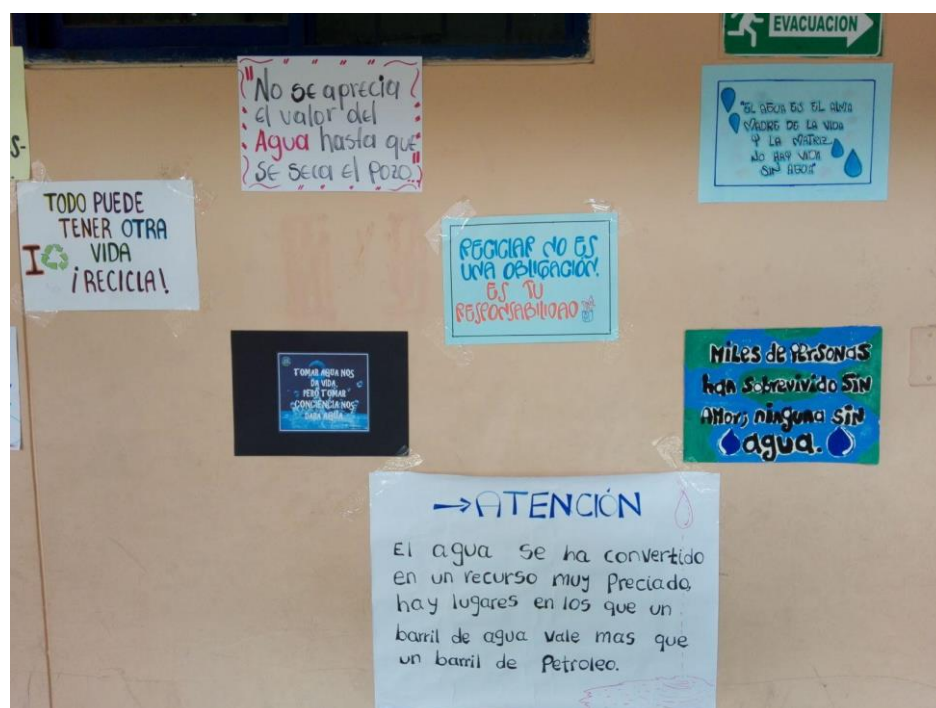 EVACUACION
S-
"No se aprecia
el valor del
Agua hasta que
se seca el pozo."
"EL AGUA ES EL ALMA
MADRE DE LA VIDA
Y LA MATRIZ.
NO HAY VIDA
SIN AGUA"
TODO PUEDE
TENER OTRA
I VIDA
¡RECICLA!
RECICLAR NO ES
UNA OBLIGACIÓN.
ES TU
RESPONSABILIDAD
TOMAR AGUA NOS
DA VIDA,
PERO TOMAR
CONCIENCIA NOS
DARÁ AGUA
Miles de personas
han sobrevivido sin
Amor; ninguna sin
agua.
→ATENCIÓN
El agua se ha convertido
en un recurso muy Preciado,
hay lugares en los que un
barril de agua vale mas que
un barril de Petroleo.